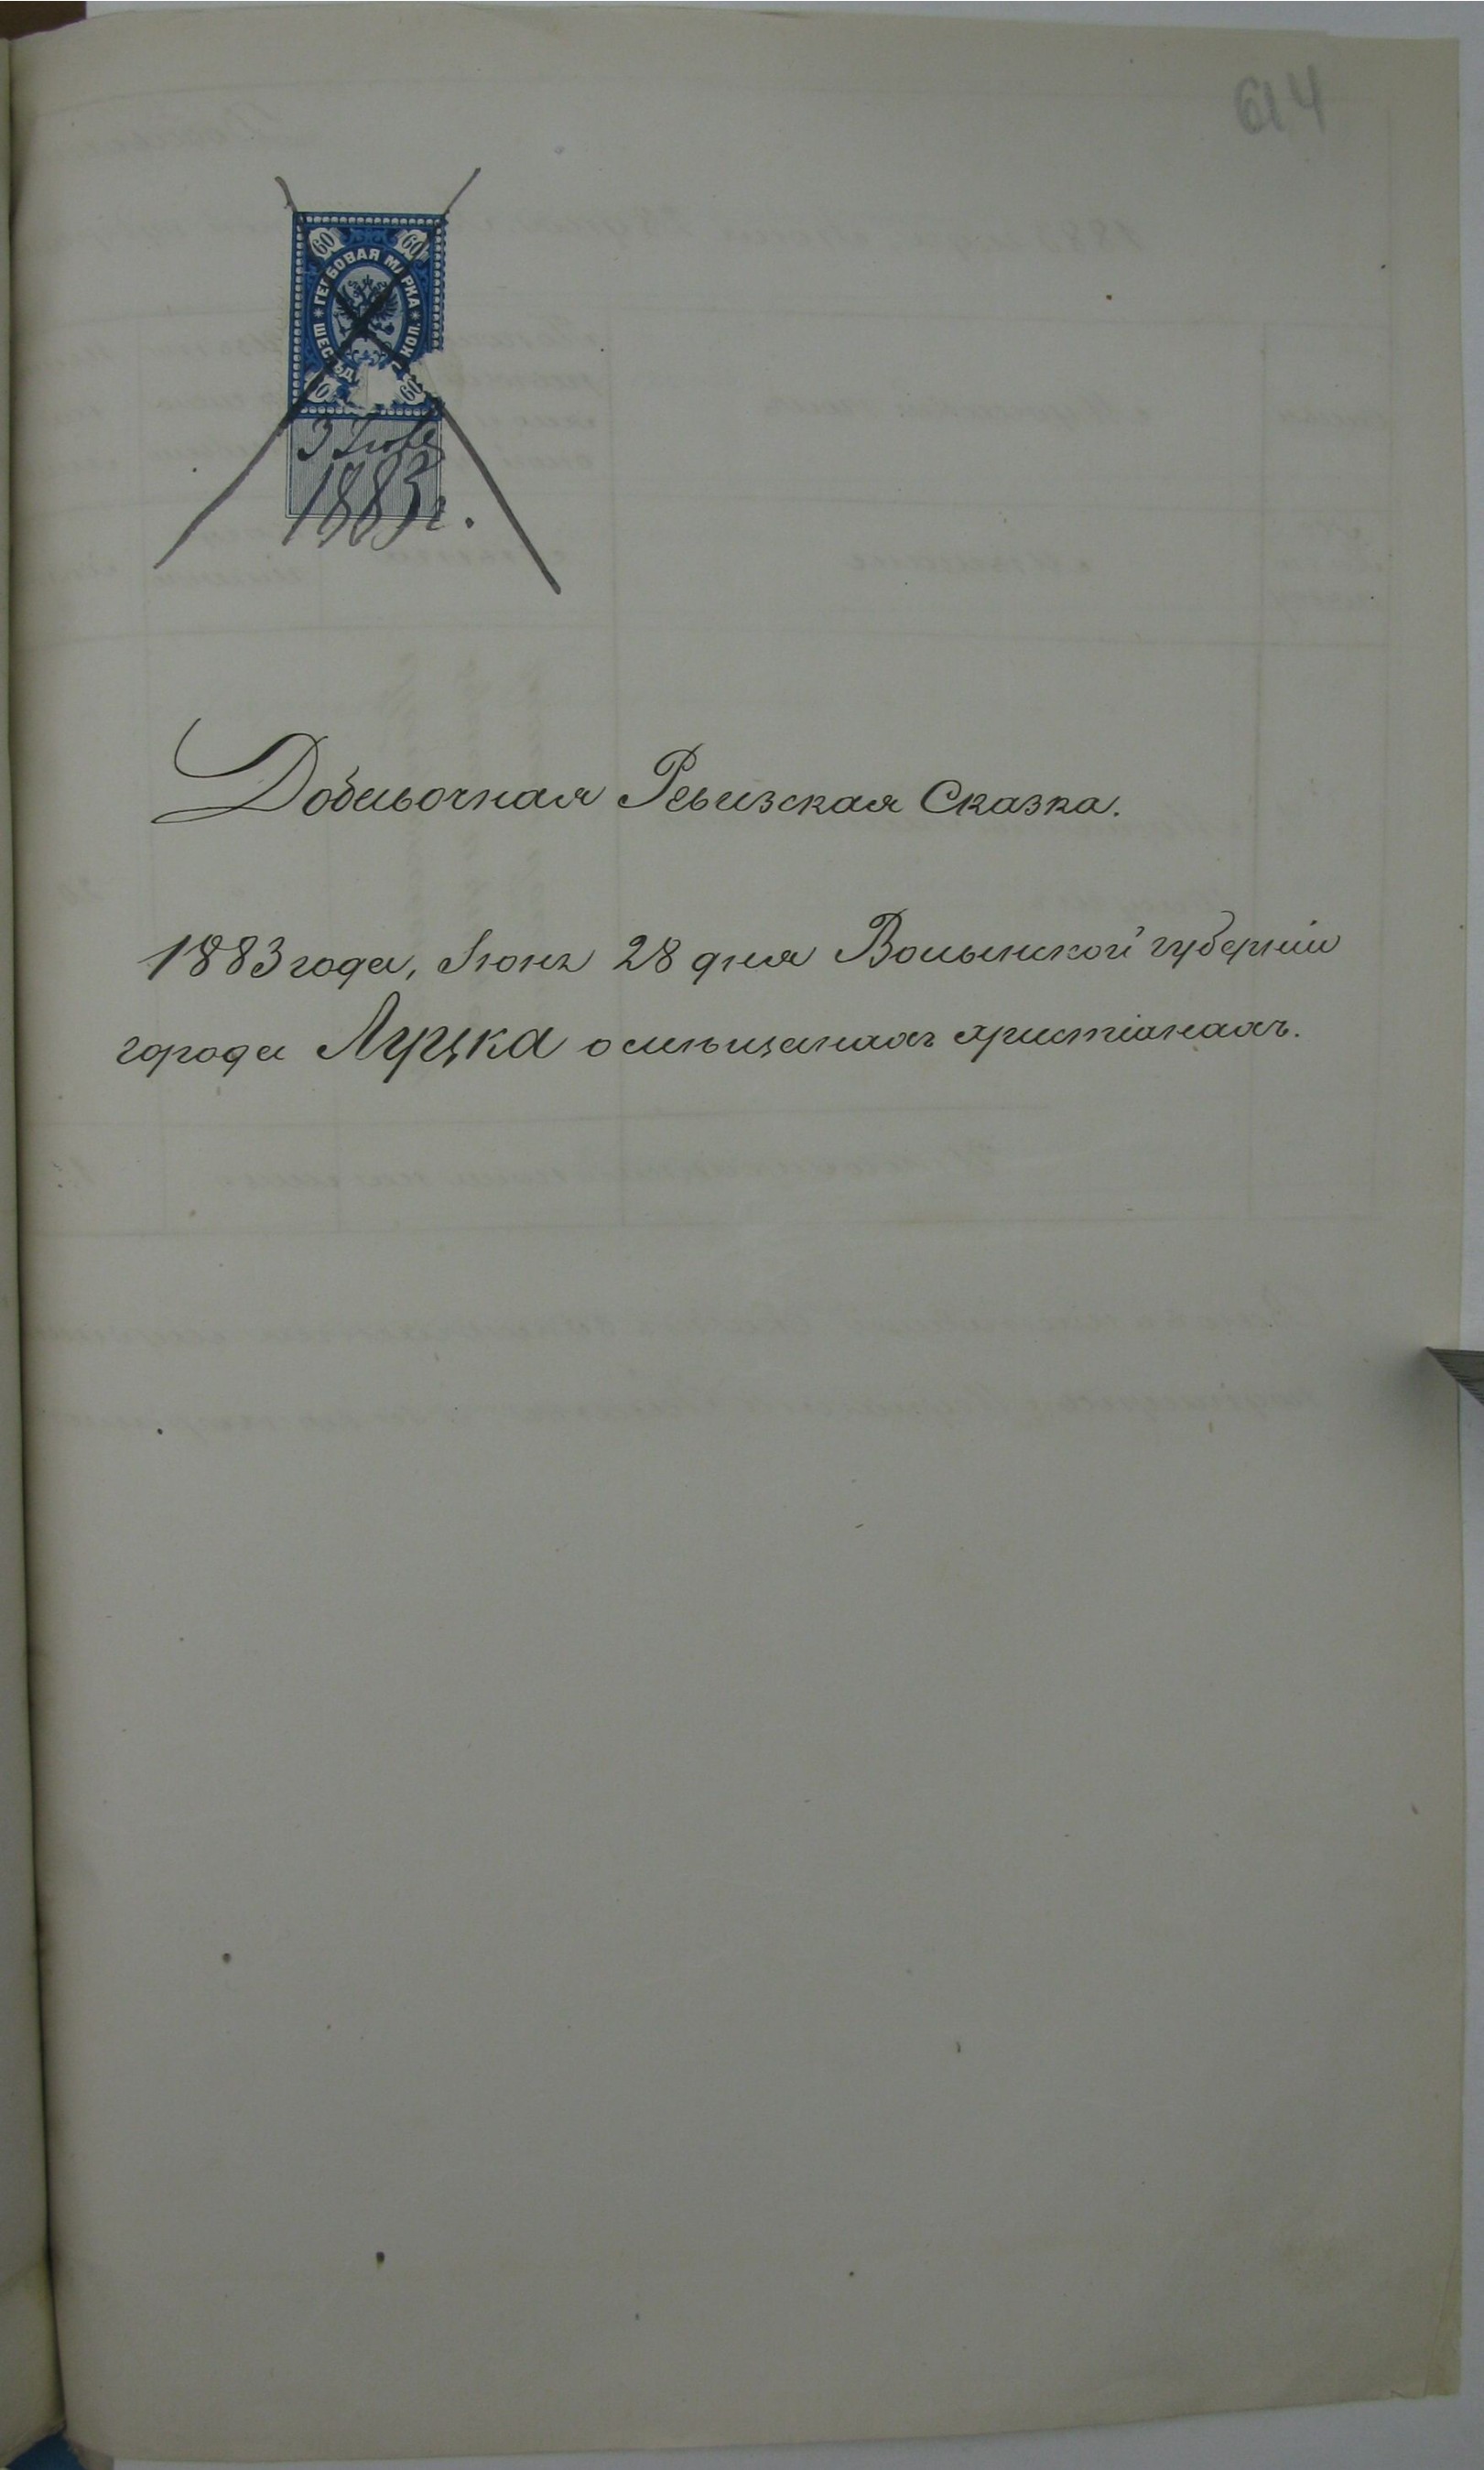 614
60 60
ГЕРБОВАЯ МАРКА
ШЕСТЬД КОП.
60 60
3 Іюля
1883 г.
Добавочная Ревизская Сказка.
1883 года, Іюня 28 дня Волынской губерніи
города Луцка о мѣщанахъ христіанахъ.